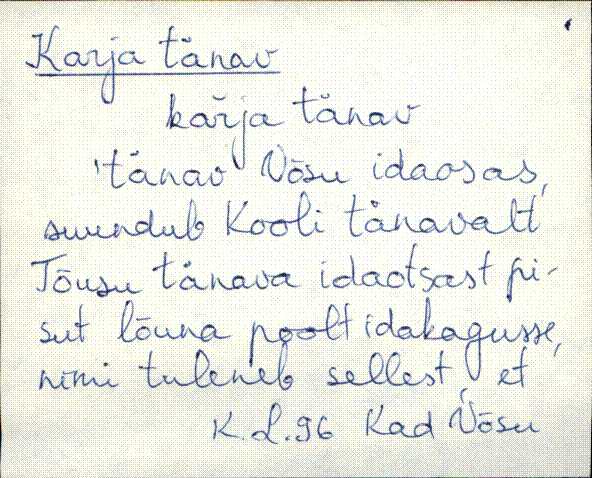 Karja tänav
kar̆ja tänav
'tänav Võsu idaosas,
suundub Kooli tänavalt
Tõusu tänava idaotsast pi-
sut lõuna poolt idakagusse,
nimi tuleneb sellest, et
K.L.96 Kad Võsu